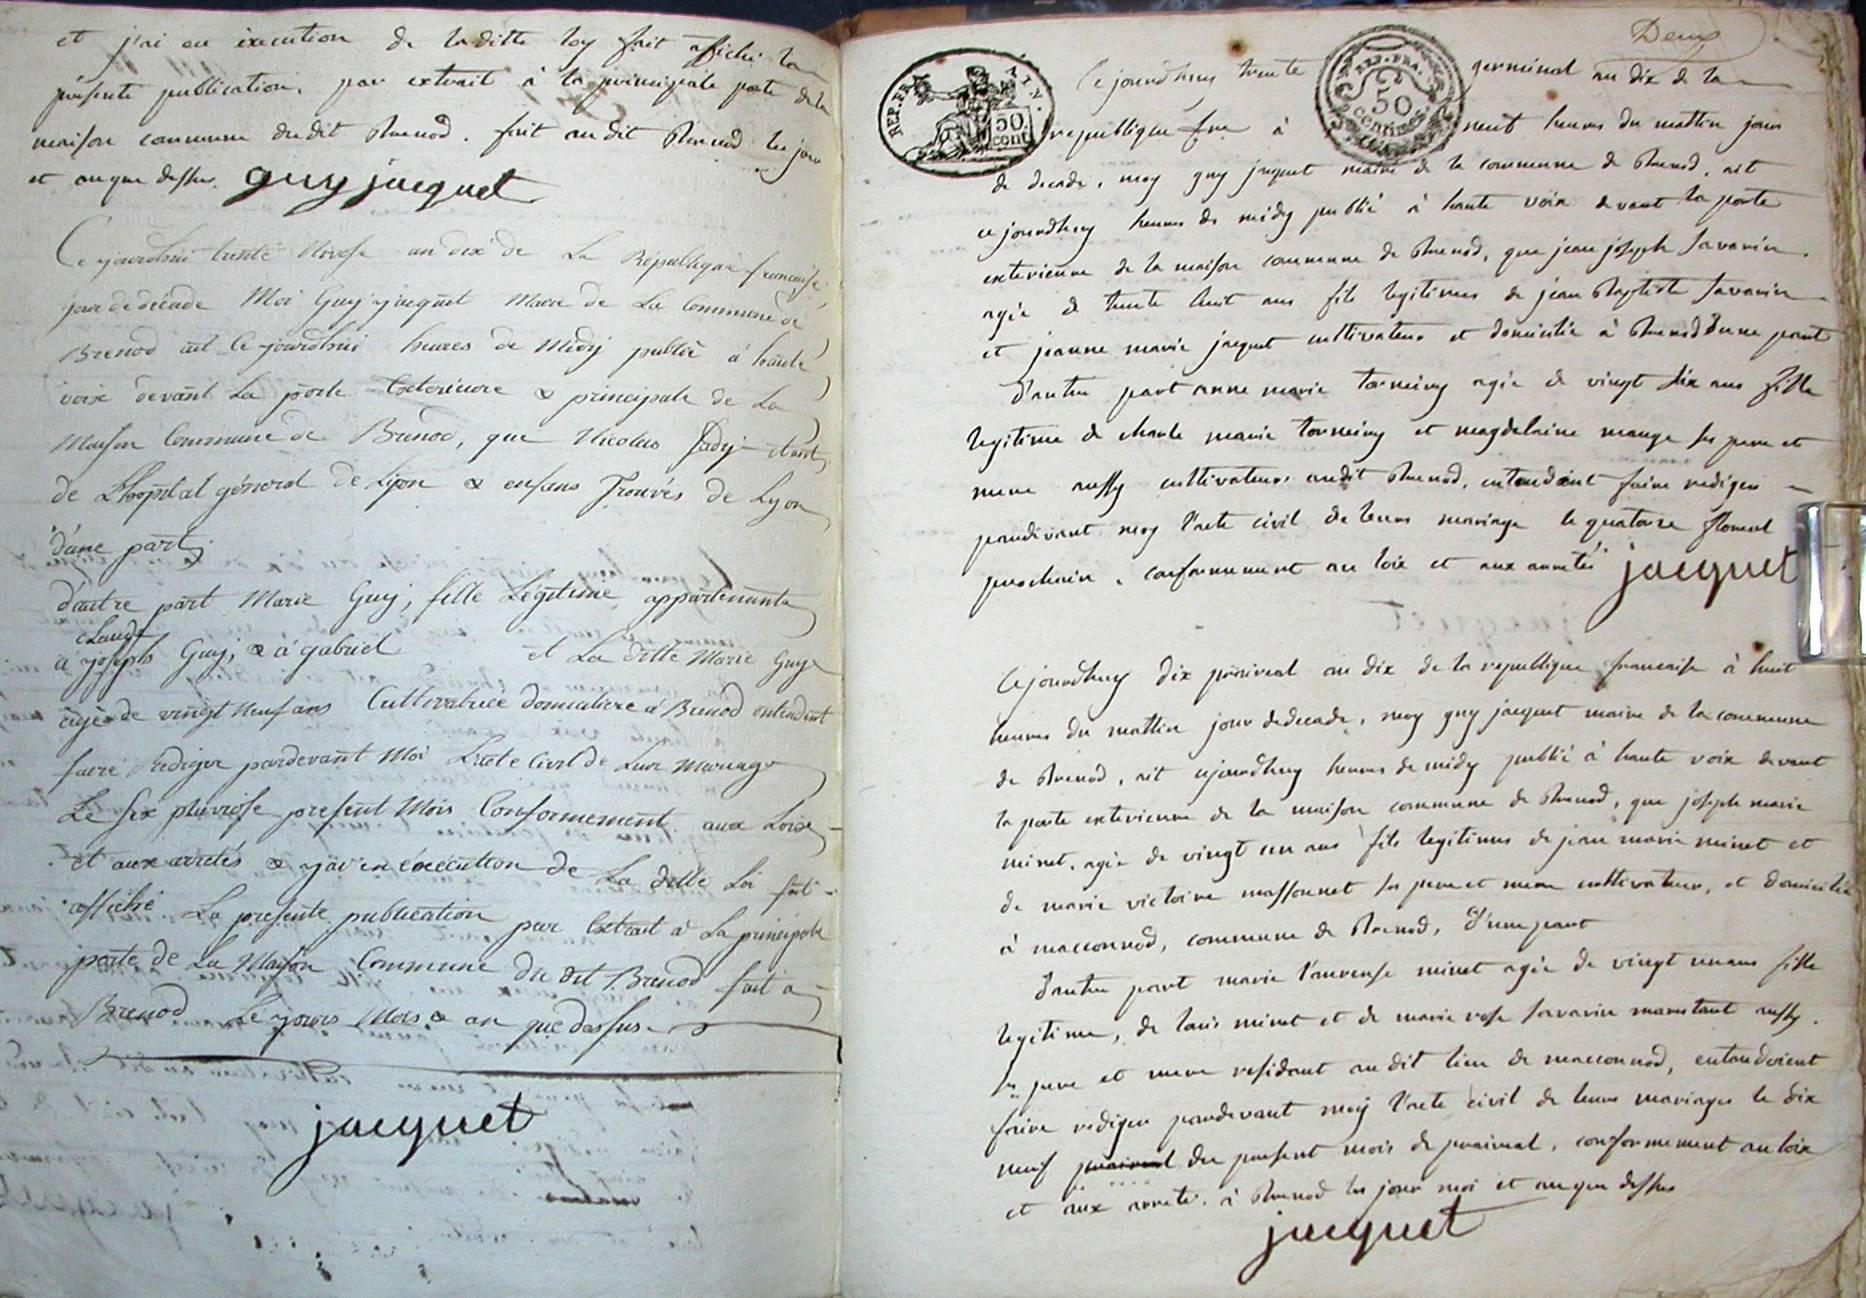 et j'ai en execution de la ditte loy fait affiché la
présente publication, par extrait à la principale porte de la
maison commune dudit Brenod. fait au dit Brenod les jour
et an que dessus. guy jacquet
Ce jourdhui trente Nivose an dix de La République française
jour de décade Moi Guy jacquet Maire de La Commune de
Brenod ait Ce jourdhui heures de Midy publié à haute
voix devant La porte Exterieure & principale de La
Maison Commune de Brenod, que Nicolas
de L'hopital général de Lyon & enfans Trouvés de Lyon
d'une part,
d'autre part Marie Guy, fille Légitime appartenante
Claude
à joseph Guy, & à gabriel et La ditte Marie Guy
âgée de vingt Neuf ans Cultivatrice domiciliere à Brenod entendent
faire Rediger pardevant Moi L'acte Civil de Leur Mariage
Le six pluviose present Mois Conformement aux Loix
et aux arretés & j'ai en éxécution de La ditte Loi fait
affiché La presente publication par Extrait à La principale
porte de La Maison Commune du dit Brenod fait à
Brenod Le jours Mois & an que dessus.
jacquet
Deux
REP. FRA. AIN.
50 cent
REP. FRA.
50 centimes
Ce jourdhuy trente germinal an dix de la
republique fra à neuf heures du mattin jour
de decade, moy guy jacquet maire de la commune de Brenod, ait
ce jourdhuy heures de midy publié à haute voix devant la porte
exterieure de la maison commune de Brenod, que jean joseph Savarin
agée de trente huit ans fils legitimes de jean Baptiste Savarin
et jeanne marie jacquet cultivateurs et domicilié à Brenod d'une part
d'autre part anne marie tormeing agée de vingt six ans fille
legitime de charle marie tormeing et magdelaine mange ses pere et
mere aussy cultivateurs audit Brenod, entendant faire rediger
pardevant moy l'acte civil de leurs mariage le quatorze floreal
prochain, conformement au loix et aux arretés jacquet
Ce jourdhuy dix prairial an dix de la republique francaise à huit
heures du mattin jour de decade, moy guy jacquet maire de la commune
de Brenod, ait cejourdhuy heures de midy publié à haute voix devant
la porte exterieure de la maison commune de Brenod, que joseph marie
minet, agée de vingt un ans fils legitimes de jean marie minet et
de marie victoire massonnet ses pere et mere cultivateur, et domicilié
à macconnod, commune de Brenod, d'une part
d'autre part marie l'aurense minet agée de vingt un ans fille
legitime, de louis minet et de marie rose savarin aussy
ses pere et mere residant au dit lieu de macconnod, entendoient
faire rediger pardevant moy l'acte civil de leurs mariages le dix
neuf prairial du present mois de prairial, conformement au loix
et aux arreté. à Brenod les jour moi et an que dessus
jacquet